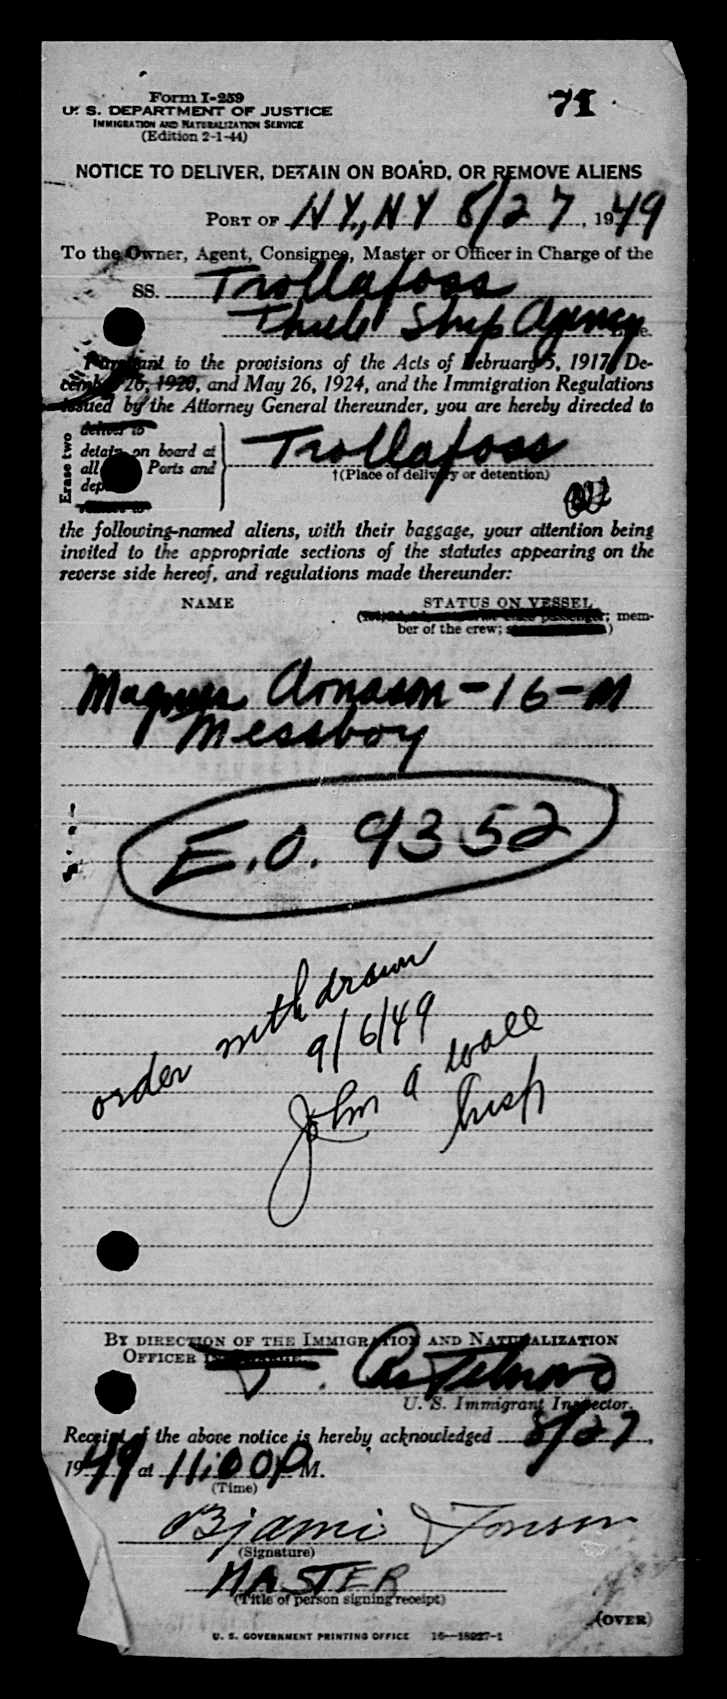 71
Form I-259
U. S. DEPARTMENT OF JUSTICE
IMMIGRATION AND NATURALIZATION SERVICE
(Edition 2-1-44)
NOTICE TO DELIVER, DETAIN ON BOARD, OR REMOVE ALIENS
PORT OF N.Y., N.Y 8/27, 1949
To the Owner, Agent, Consignee, Master or Officer in Charge of the
SS. Trollafoss
Thule Ship Agency
Pursuant to the provisions of the Acts of February 5, 1917, De-
cember 26, 1920, and May 26, 1924, and the Immigration Regulations
issued by the Attorney General thereunder, you are hereby directed to
Erase two
deliver to
detain on board at
all Ports and
Trollafoss
†(Place of delivery or detention)
remove to
the following-named aliens, with their baggage, your attention being
invited to the appropriate sections of the statutes appearing on the
reverse side hereof, and regulations made thereunder:
NAME STATUS ON VESSEL
passenger; mem-
ber of the crew; )
Magnus Arnason - 16 - M
Messboy
E.O. 9352
order withdrawn
9/6/49
John A Wall
Insp
BY DIRECTION OF THE IMMIGRATION AND NATURALIZATION
OFFICER IN CHARGE.
U. S. Immigrant Inspector.
Receipt of the above notice is hereby acknowledged 8/27,
1949 at 11:00 P M.
(Time)
Bjarni Jonsson
(Signature)
MASTER
(Title of person signing receipt)
(OVER)
U. S. GOVERNMENT PRINTING OFFICE 16—18927-1